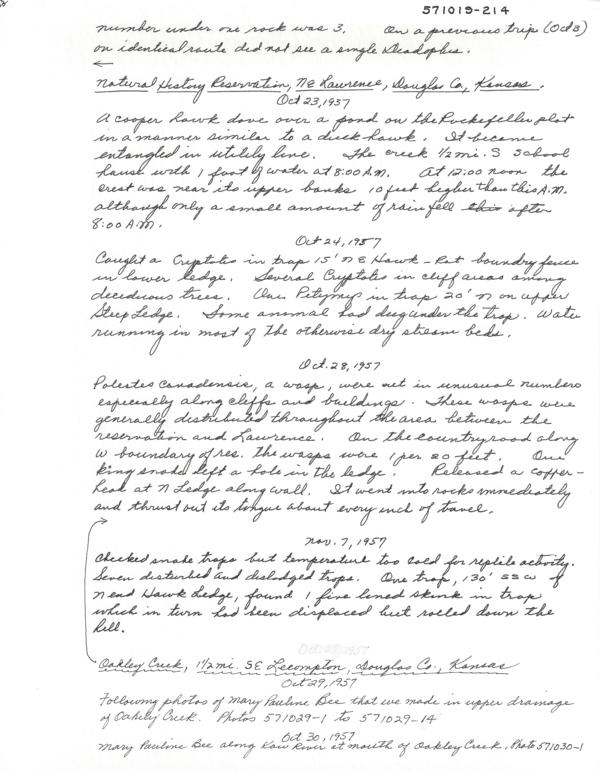 571019-214
number under one rock was 3. On a previous trip (Oct 3)
on identical route did not see a single Diadophis.
←
Natural History Reservation, NE Lawrence, Douglas Co, Kansas.
Oct 23, 1957
A cooper hawk dove over a pond on the Rockefeller plot
in a manner similar to a duck hawk. It became
entangled in utility line. The creek 1/2 mi. S School
house with 1 foot of water at 8:00 A.M. At 12:00 noon the
crest was near its upper banks 10 feet higher than this A.M.
although only a small amount of rain fell this after
8:00 A.M.
Oct 24, 1957
Caught a Cryptotis in trap 15' N E Hawk-Rat boundry fence
in lower ledge. Several Cryptotis in cliff areas among
deciduous trees. One Pitymys in trap 20' N on upper
Steep Ledge. Some animal had dug under the trap. Water
running in most of the otherwise dry stream beds.
Oct. 28, 1957
Polestes canadensis, a wasp, were met in unusual numbers
especially along cliffs and buildings. These wasps were
generally distributed throughout the area between the
reservation and Lawrence. On the country road along
W boundary of res. the wasps were 1 per 20 feet. One
king snake left a hole in the ledge. Released a copper-
head at N Ledge along wall. It went into rocks immediately
and thrust out its tongue about every inch of travel.
Nov. 7, 1957
Checked snake traps but temperature too cold for reptile activity.
Seven disturbed and dislodged traps. One trap, 130' SSW of
N end Hawk Ledge, found 1 five lined skink in trap
which in turn had been displaced but rolled down the
hill.
Oakley Creek, 1 1/2 mi. SE Lecompton, Douglas Co., Kansas
Oct 29, 1957
Following photos of Mary Pauline Bee that we made in upper drainage
of Oakely Creek. Photos 571029-1 to 571029-14
Oct 30, 1957
Mary Pauline Bee along Kaw River at mouth of Oakley Creek, Photo 571030-1